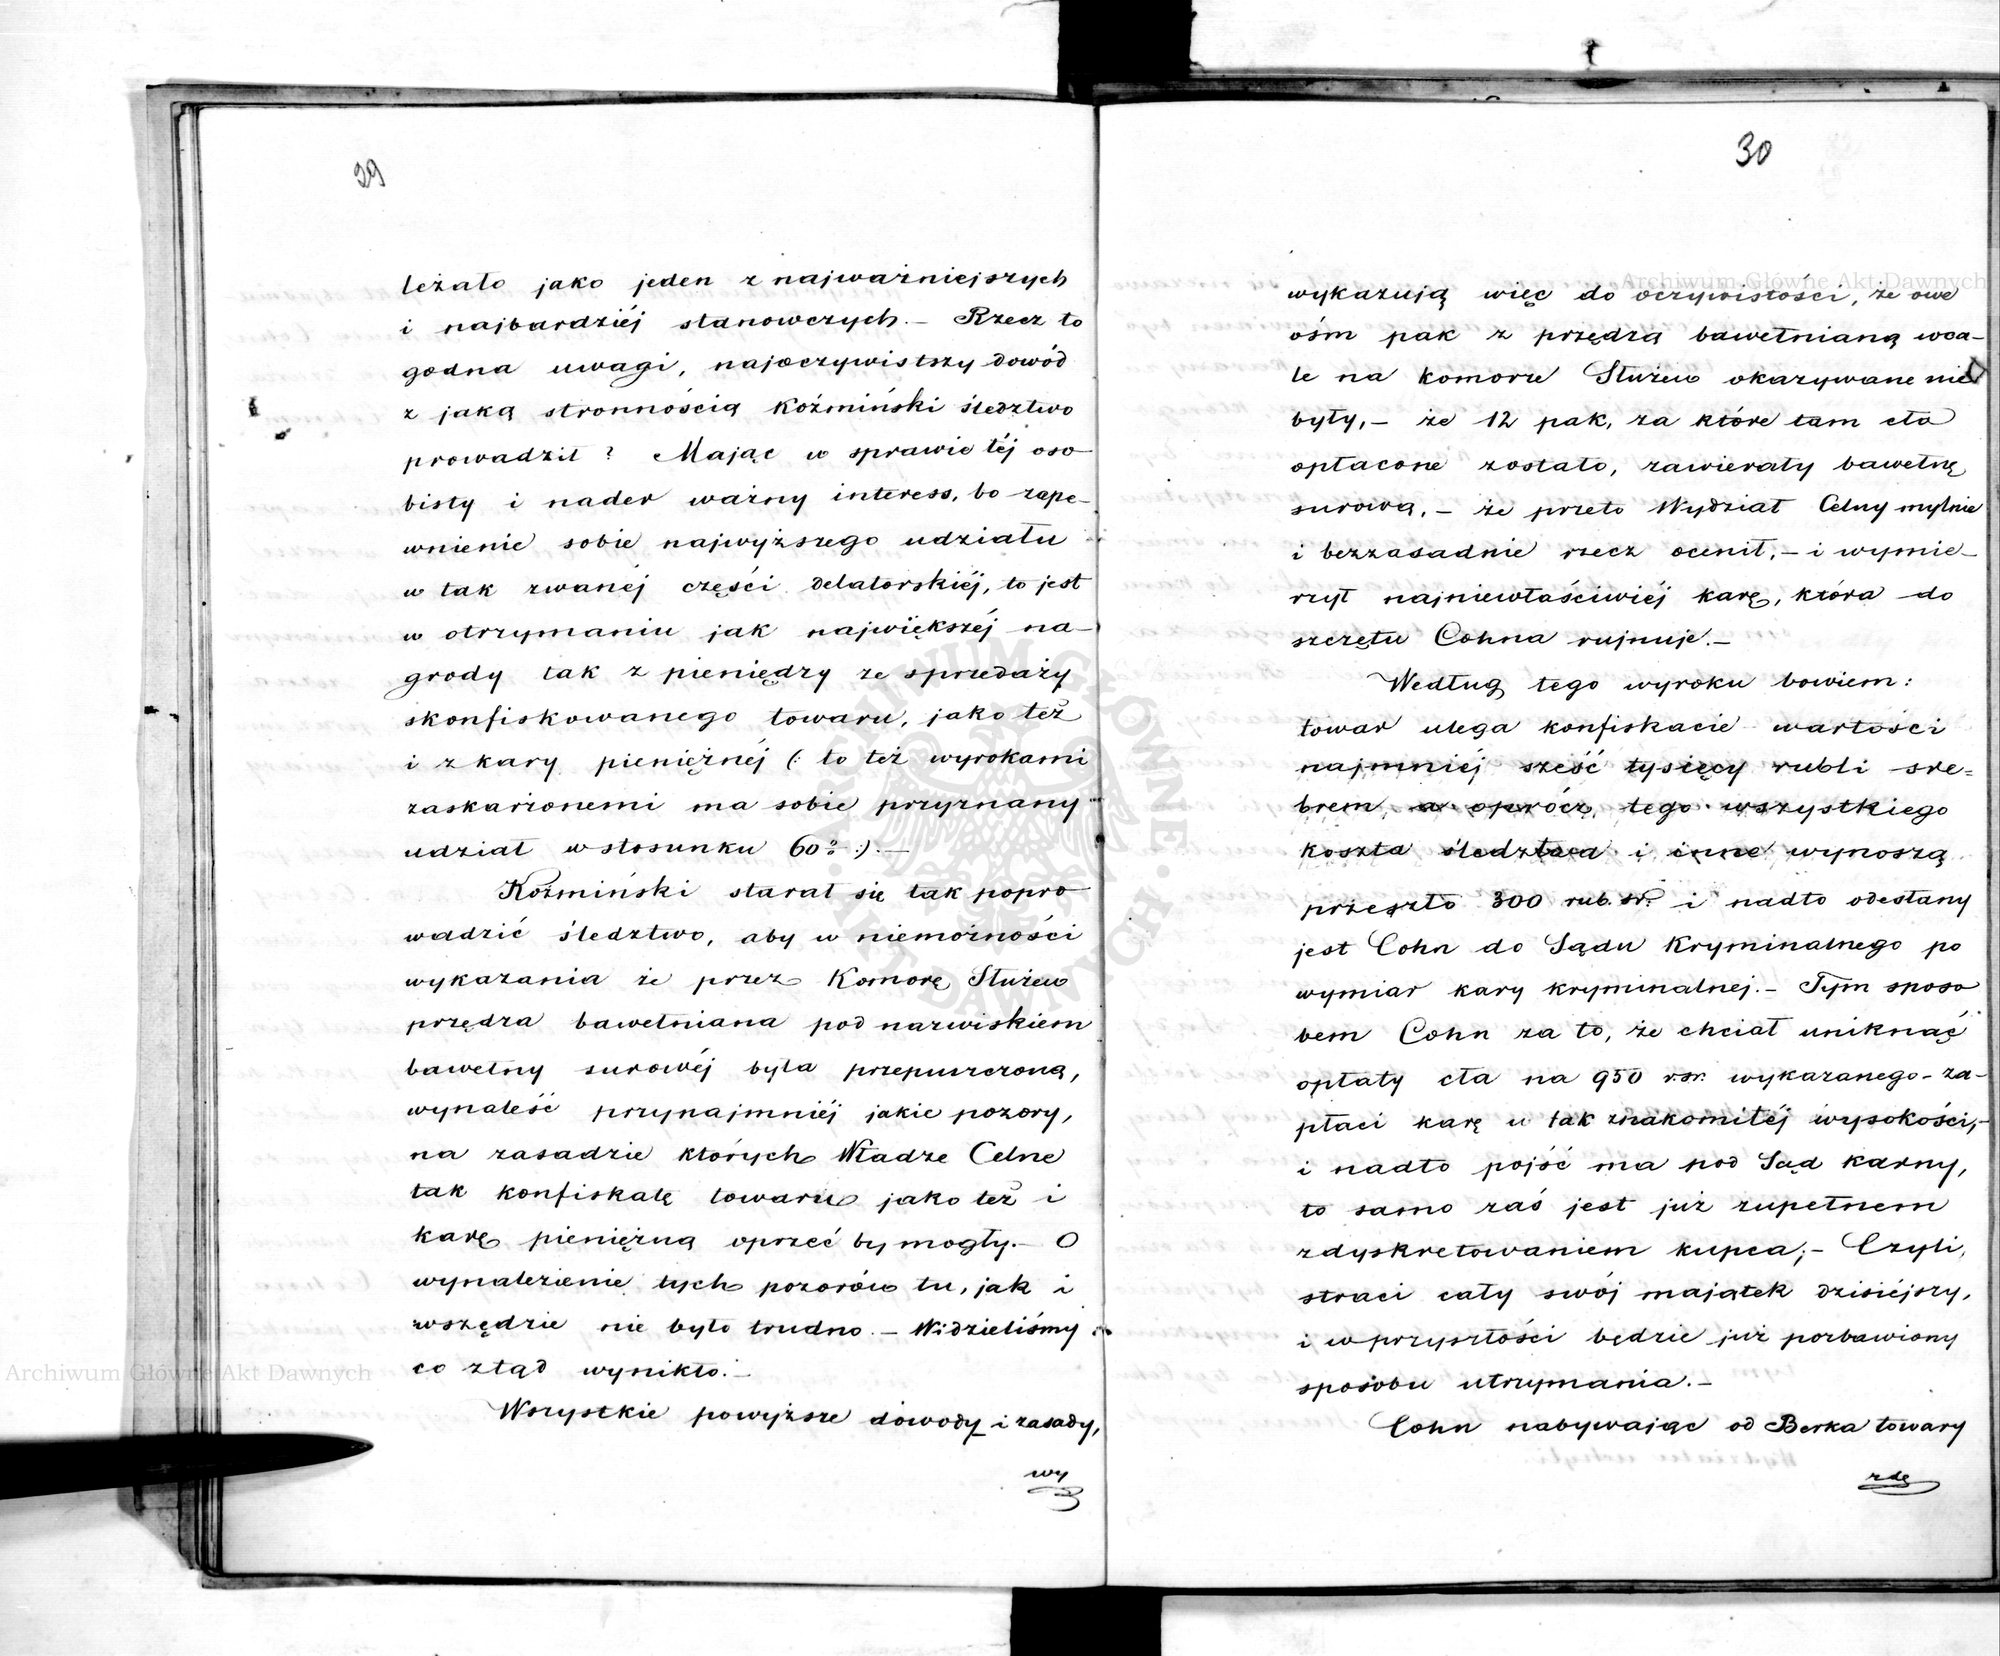 29
leżało jako jeden z najważniejszych
i najbardziéj stanowczych. – Rzecz to
godna uwagi, najoczywistszy dowód
z jaką stronnością Koźmiński śledztwo
prowadził? Mając w sprawie téj oso-
bisty i nader ważny interess, bo zape-
wnienie sobie najwyższego udziału
w tak zwanéj części delatorskiéj, to jest
w otrzymaniu jak największéj na-
grody tak z pieniędzy ze sprzedaży
skonfiskowanego towaru, jako też
i z kary pieniężnéj (: to też wyrokami
zaskarżonemi ma sobie przyznany
udział w stosunku 60 :). –
Koźmiński starał się tak popro-
wadzić śledztwo, aby w niemożności
wykazania że przez Komorę Służew
przędza bawełniana pod nazwiskiem
bawełny surowéj była przepuszczoną,
wynaleść przynajmniéj jakie pozory,
na zasadzie których Władze Celne
tak konfiskatę towaru jako też i
karę pieniężną oprzeć by mogły. – O
wynalezienie tych pozorów tu, jak i
wszędzie nie było trudno. – Widzieliśmy
co ztąd wynikło. –
Wszystkie powyższe dowody i zasady,
wy
30
wykazują więc do oczywistości, że owe
ośm pak z przędzą bawełnianą wca-
le na komorze Służew okazywane nie
były, – że 12 pak, za które tam cło
opłacone zostało, zawierały bawełnę
surową, – że przeto Wydział Celny mylnie
i bezzasadnie rzecz ocenił, – i wymie-
rzył najniewłaściwiéj karę, która do
szczętu Cohna rujnuje. –
Według tego wyroku bowiem:
towar ulega konfiskacie wartości
najmniéj sześć tysięcy rubli sre=
brem, a oprócz tego wszystkiego
koszta śledztwa i inne wynoszą
przeszło 300 rub. sr. i nadto odesłany
jest Cohn do Sądu Kryminalnego po
wymiar kary kryminalnej. – Tym sposo
bem Cohn za to, że chciał uniknąć
opłaty cła na 950 r. sr. wykazanego – za-
płaci karę w tak znakomitéj wysokości, –
i nadto pojść ma pod Sąd karny,
to samo zaś jest już zupełnem
zdyskretowaniem kupca; – Czyli,
straci cały swój majątek dzisiéjszy,
i w przyszłości będzie już pozbawiony
sposobu utrzymania. –
Cohn nabywając od Berka towary
Archiwum Główne Akt Dawnych
Archiwum Główne Akt Dawnych
ARCHIWUM GŁÓWNE AKT DAWNYCH